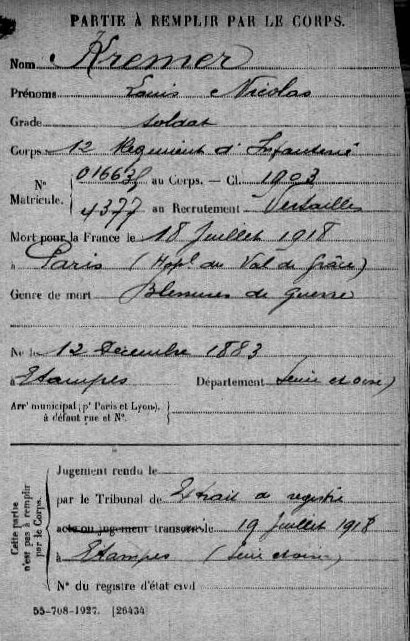 PARTIE À REMPLIR PAR LE CORPS.
Nom Kremer
Prénoms Louis Nicolas
Grade soldat
Corps 12 Régiment d'Infanterie
Nº Matricule. 01663 au Corps. — Cl. 1903
4377 au Recrutement Versailles
Mort pour la France le 18 Juillet 1918
à Paris (Hopl du Val de Grâce)
Genre de mort Blessures de guerre
Né le 12 Décembre 1883
à Etampes Département Seine et Oise)
Arrt municipal (pr Paris et Lyon),
à défaut rue et Nº.
Cette partie n'est pas à remplir par le Corps.
Jugement rendu le
par le Tribunal de Extrait de registre
acte ou jugement transcrit le 19 Juillet 1918
à Etampes (Seine et Oise)
Nº du registre d'état civil
55-708-1927. [26434]